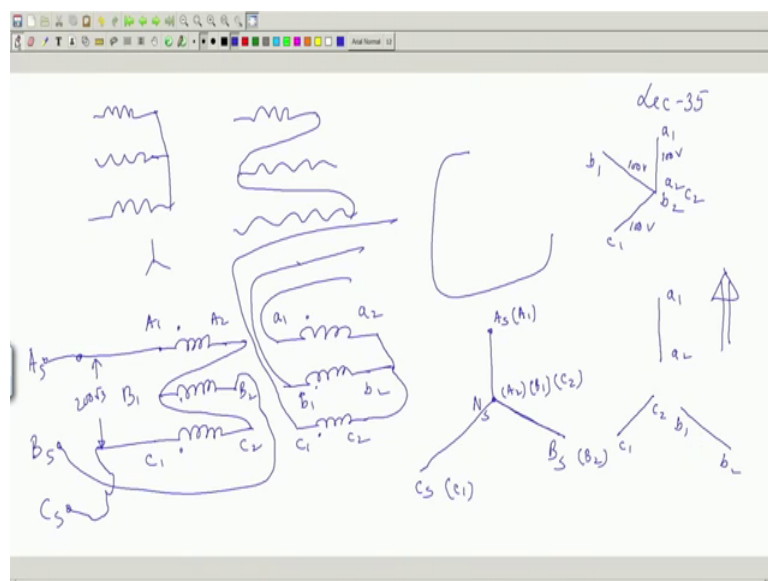 Arial Normal 12
Lec-35
a1
100V
b1
100V
a2
b2 c2
c1
100V
A1 A2
As
200√3
B1 B2
Bs
C1 C2
Cs
a1 a2
b1 b2
c1 c2
As (A1)
Ns (A2)(B1)(C2)
Bs (B2)
Cs (C1)
a1
a2
c2
b1
c1
b2